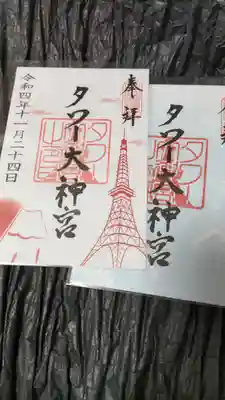 奉拝
タワー大神宮
令和四年十一月二十四日
タワー大神宮